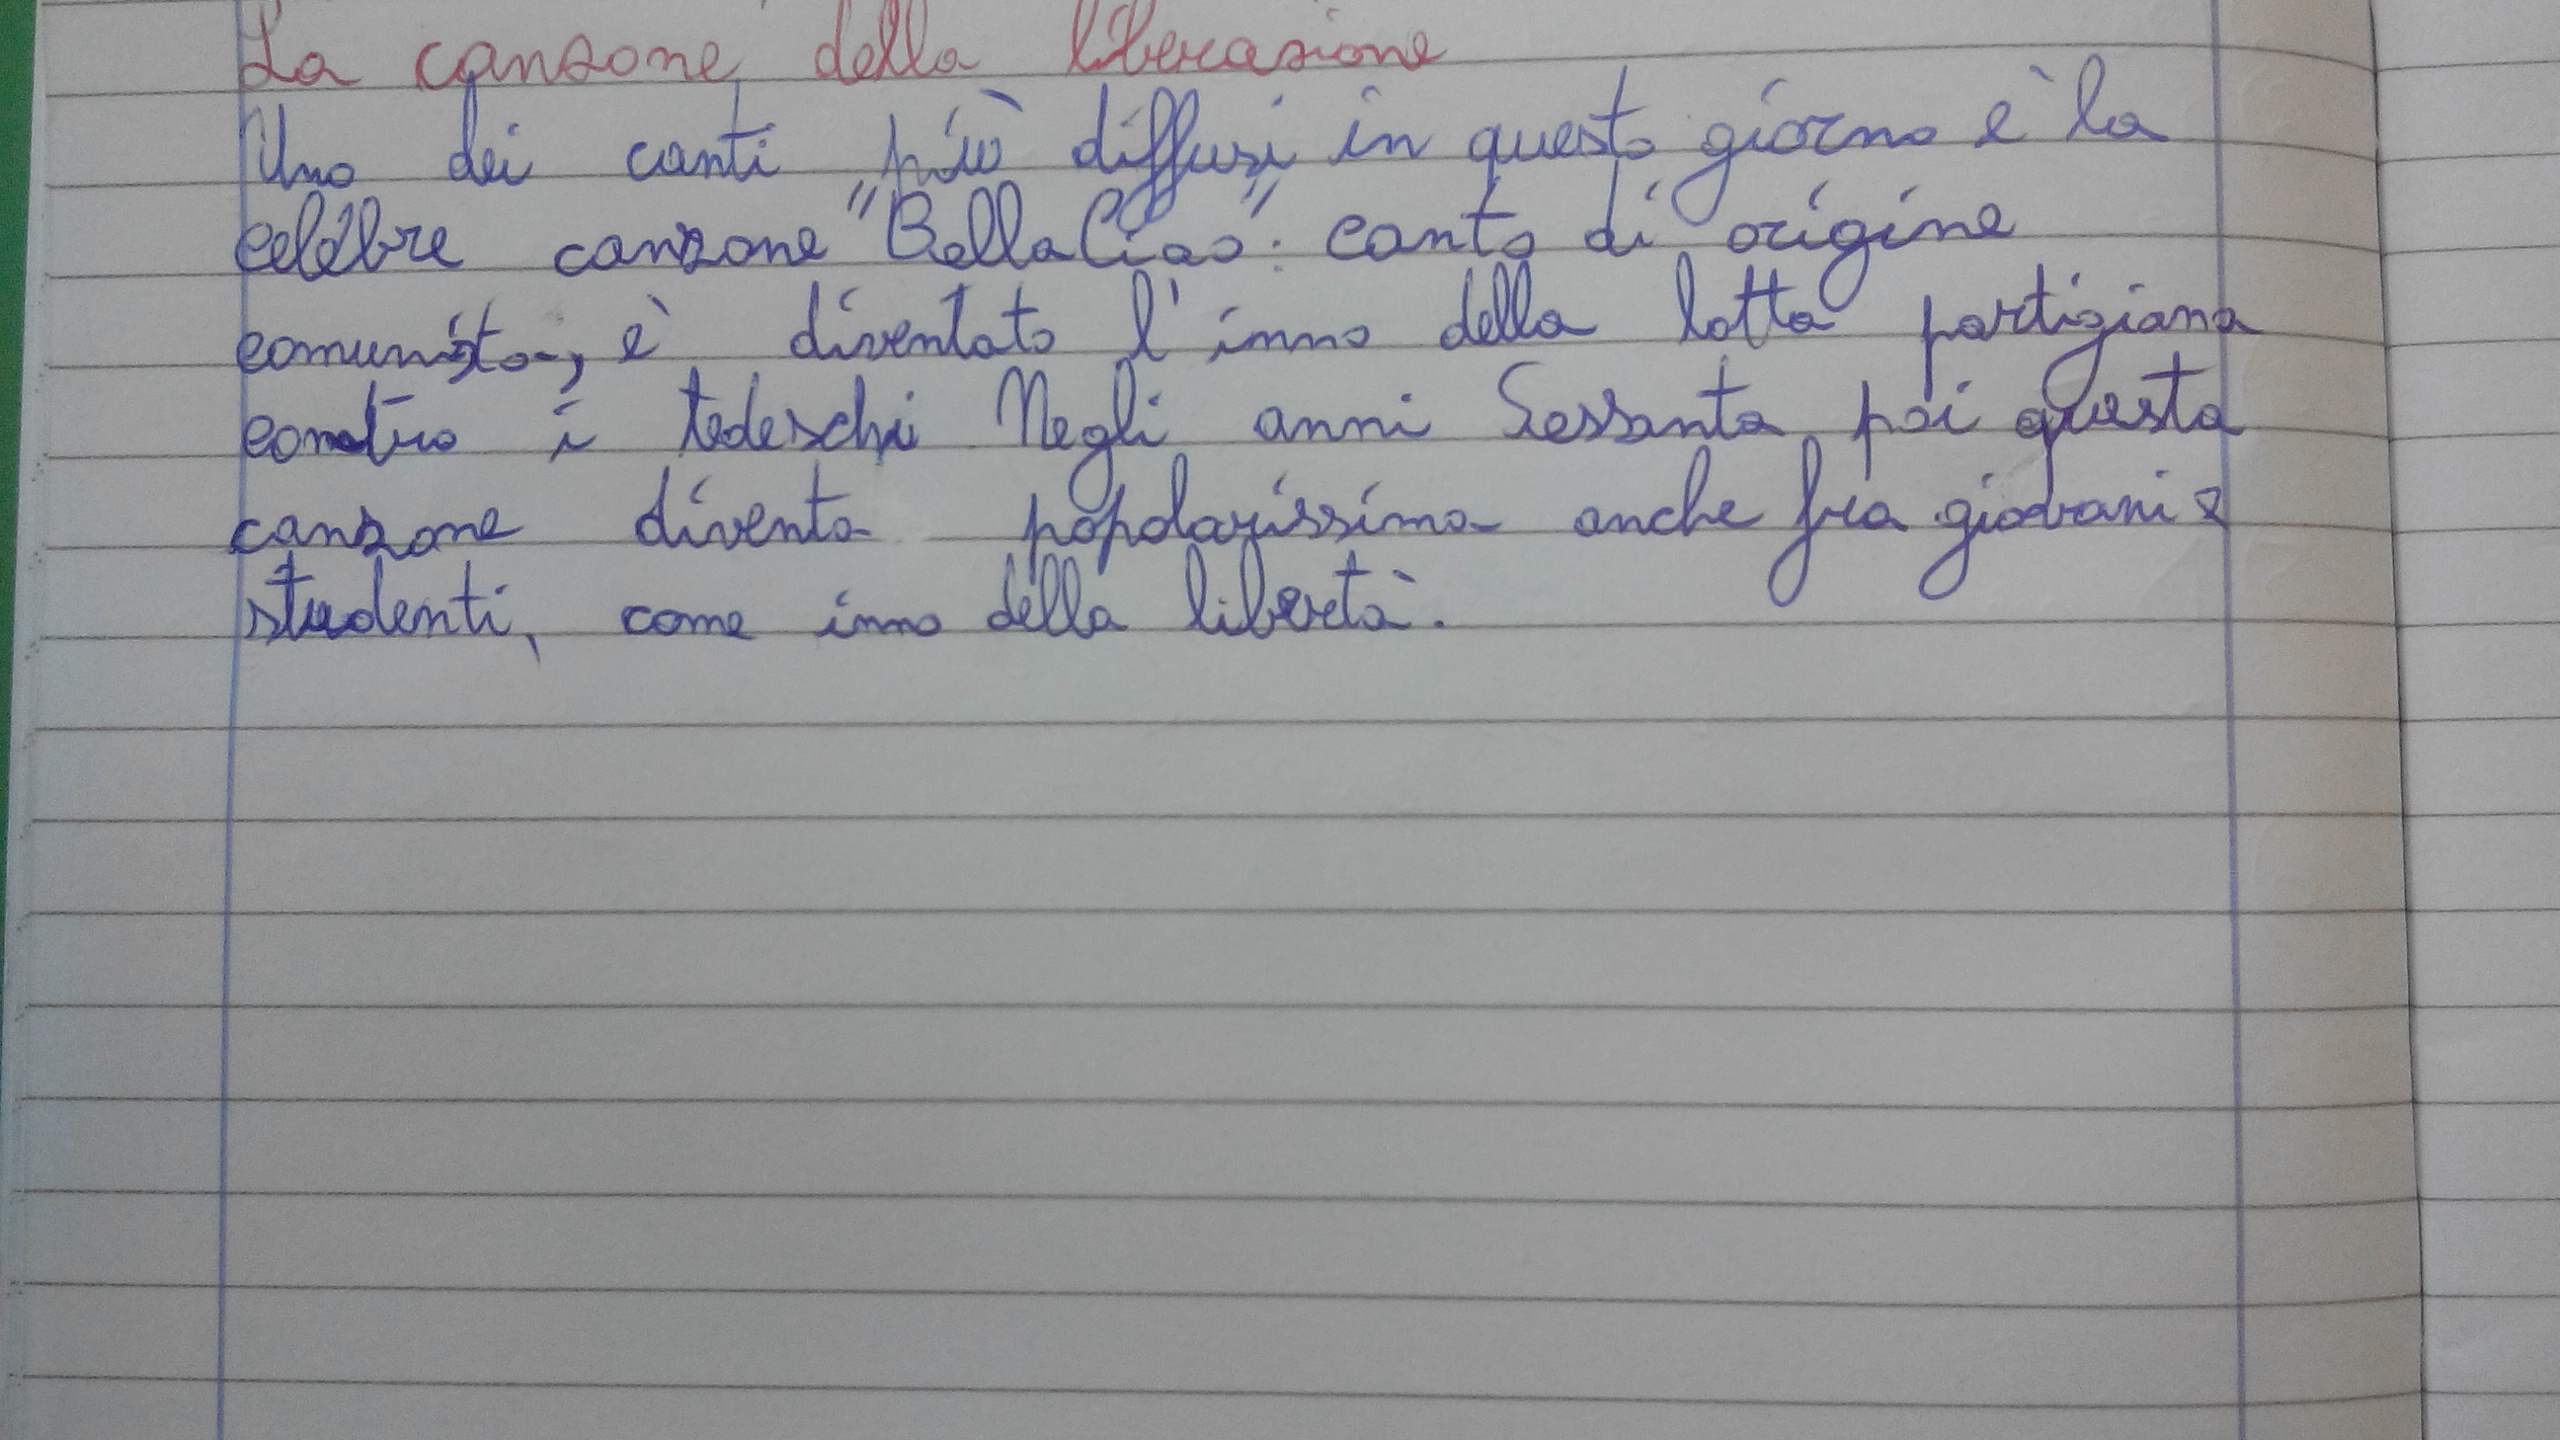 La canzone della liberazione
Uno dei canti più diffusi in questo giorno è la
celebre canzone "Bella Ciao": canto di origine
comunista, è diventato l'inno della lotta partigiana
contro i tedeschi Negli anni Sessanta poi questa
canzone diventa popolarissima anche fra giovani e
studenti, come inno della libertà.